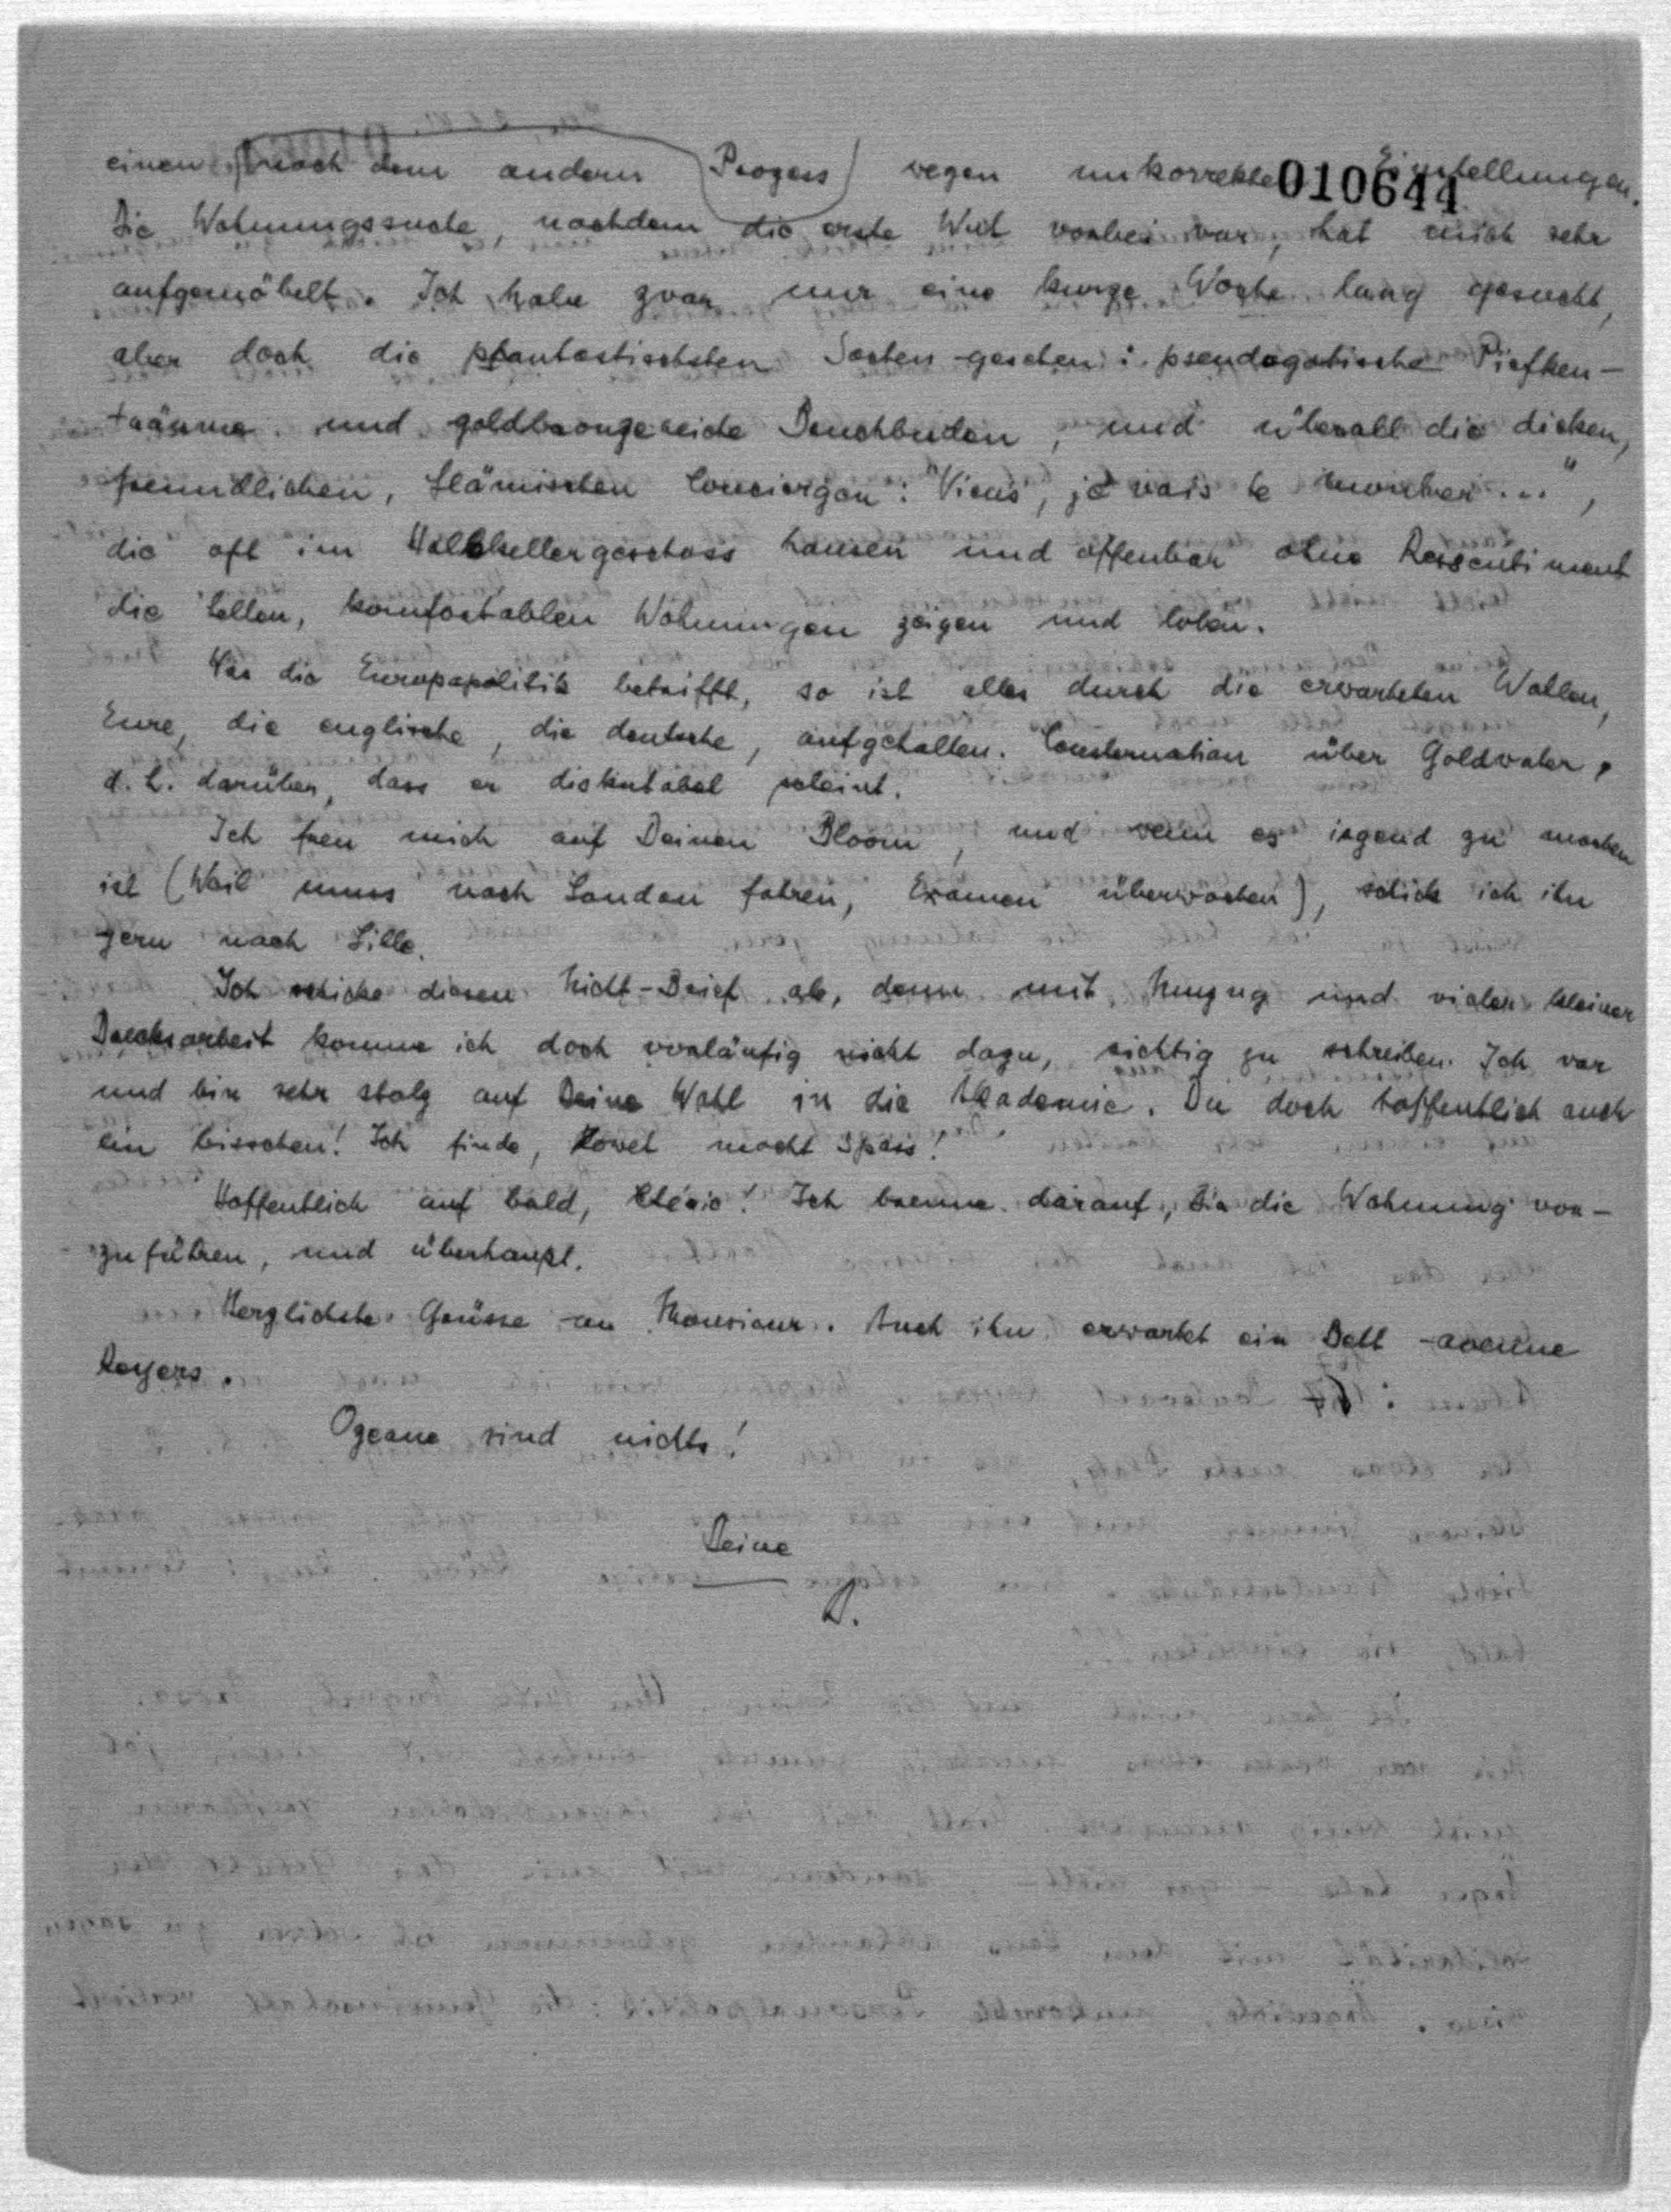 einen nach dem andern Prozess wegen unkorrekter Einstellungen.
010644
Die Wohnungssuche, nachdem die erste Wut vorbei war, hat mich sehr
aufgemöbelt. Ich habe zwar nur eine kurze Woche lang gesucht,
aber doch die phantastischsten Sachen gesehen: pseudogotische Piefken-
träume und goldbronzereiche Bruchbuden, und überall die dicken,
freundlichen, flämischen Conciergen: "Viens, je vais te montrer...",
die oft im Halbkellergeschoss hausen und offenbar ohne Ressentiment
die hellen, komfortablen Wohnungen zeigen und loben.
Was die Europapolitik betrifft, so ist alles durch die erwarteten Wahlen,
Eure, die englische, die deutsche, aufgehalten. Consternation über Goldwater,
d.h. darüber, dass er diskutabel scheint.
Ich freu mich auf Deinen Bloom, und wenn es irgend zu machen
ist (Weil muss nach London fahren, Examen überwachen), schick ich ihn
gern nach Lille.
Ich schicke diesen Nicht-Brief ab, denn mit Umzug und vieler kleiner
Drecksarbeit komme ich doch vorläufig nicht dazu, richtig zu schreiben. Ich war
und bin sehr stolz auf Deine Wahl in die Akademie. Du doch hoffentlich auch
ein bisschen! Ich finde, sowet macht Spass!
Hoffentlich auf bald, Chérie! Ich brenne darauf, Dir die Wohnung vor-
zuführen, und überhaupt.
Herzlichste Grüsse an Monsieur. Auch ihn erwartet ein Bett -avenue
Reyers.
Ozeane sind nichts!
Deine
A.